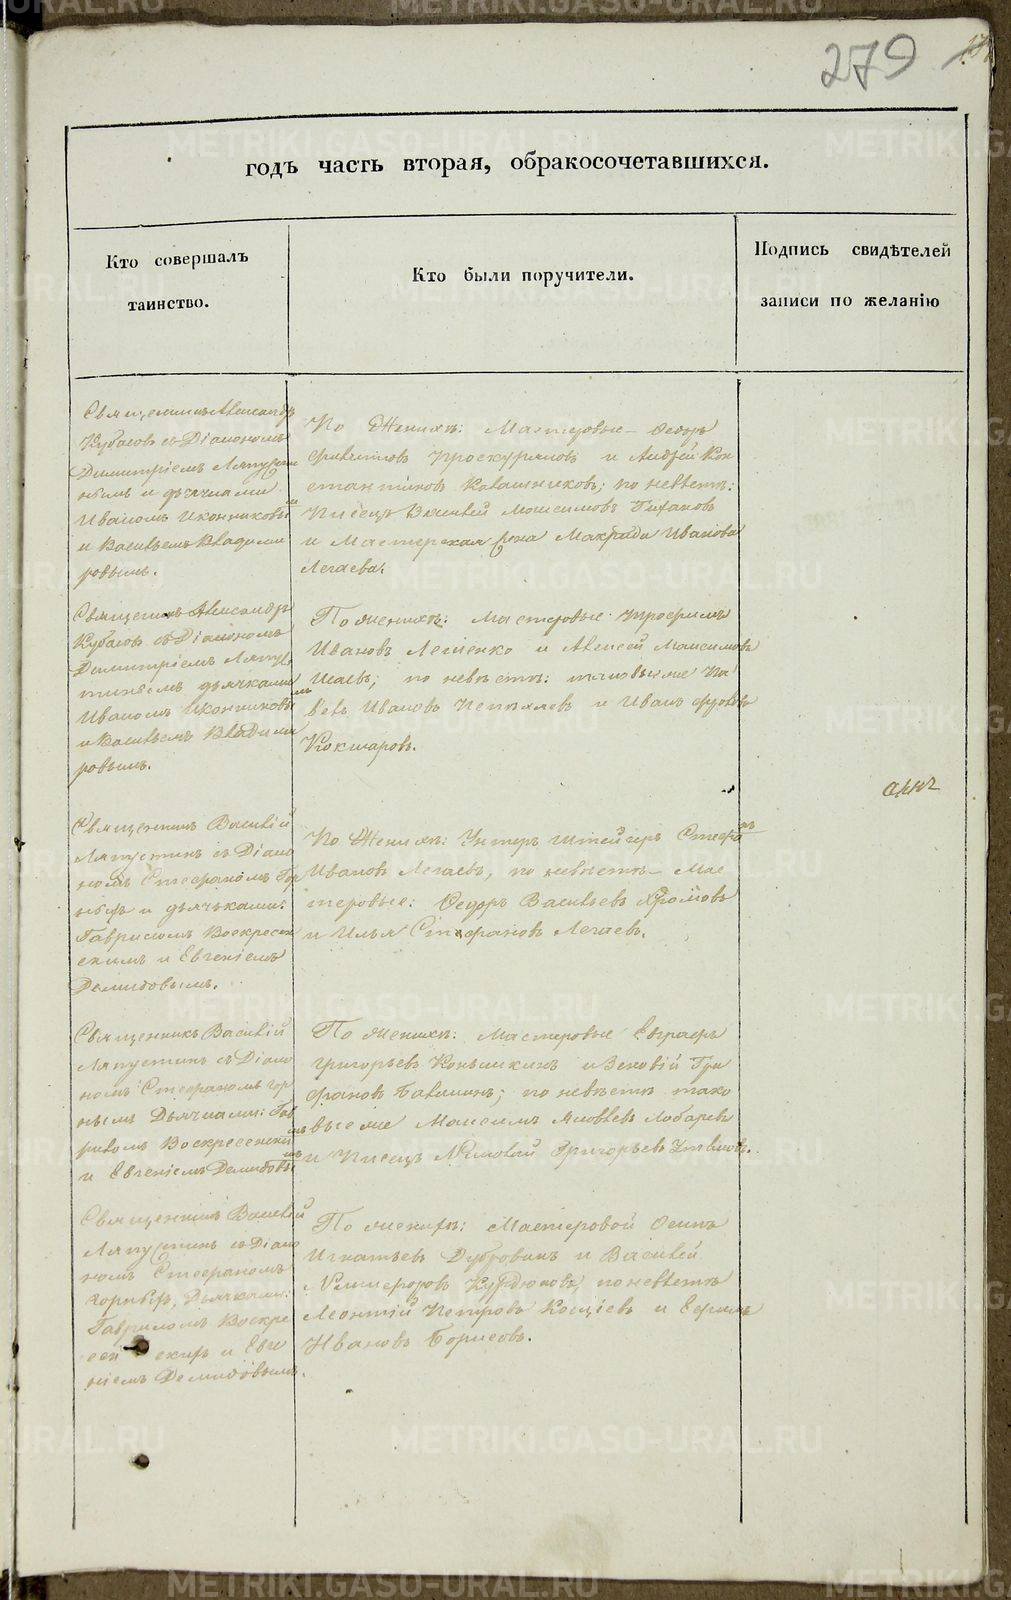 279
годъ часть вторая, обракосочетавшихся.
Кто совершалъ
таинство.
Кто были поручители.
Подпись свидѣтелей
записи по желанію
Священникъ Александръ
Кубасовъ съ Діакономъ
Димитріемъ
и дьячками
Иваномъ Иконниковымъ
и Васильемъ Владими
ровымъ.
По Женихѣ: Мастеровые Ѳедоръ
Проскуряковъ и Андрей Кон
стантиновъ Ковашниковъ; по невѣстѣ:
Писецъ Василей Максимовъ
и Мастерская жена Макрида Иванова
Легаева.
Священникъ Александръ
Кубасовъ съ Діакономъ
Димитріемъ Ляпус
тинымъ дьячками
Иваномъ Иконниковымъ
и Васильемъ Владими
ровымъ.
По женихѣ: Мастеровые Трофимъ
Ивановъ и Алексей Максимовъ
Исаевъ; по невѣстѣ: таковые же Па
велъ Ивановъ Пепеляевъ и Иванъ
Кокшаровъ.
Священникъ Василій
Ляпустинъ съ Діако
номъ Стефаномъ Гор
нымъ и дьячьками:
Гавриломъ Воскресен
скимъ и Евгеніемъ
Демидовымъ.
По Женихѣ: Унтеръ Штейгеръ Стефанъ
Ивановъ Легаевъ, по невѣстѣ Мас
теровые: Ѳедоръ Васильевъ Хромовъ
и Илья Стефановъ Легаевъ.
Священникъ Василій
Ляпустинъ съ Діако
номъ Стефаномъ Гор
нымъ Дьячками: Гав
риломъ Воскресенскимъ
и Евгеніемъ Демидовымъ
По женихѣ: Мастеровые Евграфъ
Григорьевъ Конышкинъ и Зеновій Три
фоновъ Бабкинъ; по невѣстѣ тако
вые же Максимъ Яковлевъ Лобаревъ
и Писецъ Григорьевъ Утѣмовъ.
Священникъ Василій
Ляпустинъ съ Діако
номъ Стефаномъ
Горнымъ, Дьячками:
Гавриломъ Воскре
сенскимъ и Евге
ніемъ Демидовымъ.
По женихѣ: Мастеровой Осипъ
Игнатьевъ Дубровинъ и Василей
Никифоровъ Курдюковъ, по невѣстѣ
Леонтій Петровъ Кощеевъ и Ефимъ
Ивановъ Борисовъ.
METRIKI.GASO-URAL.RU